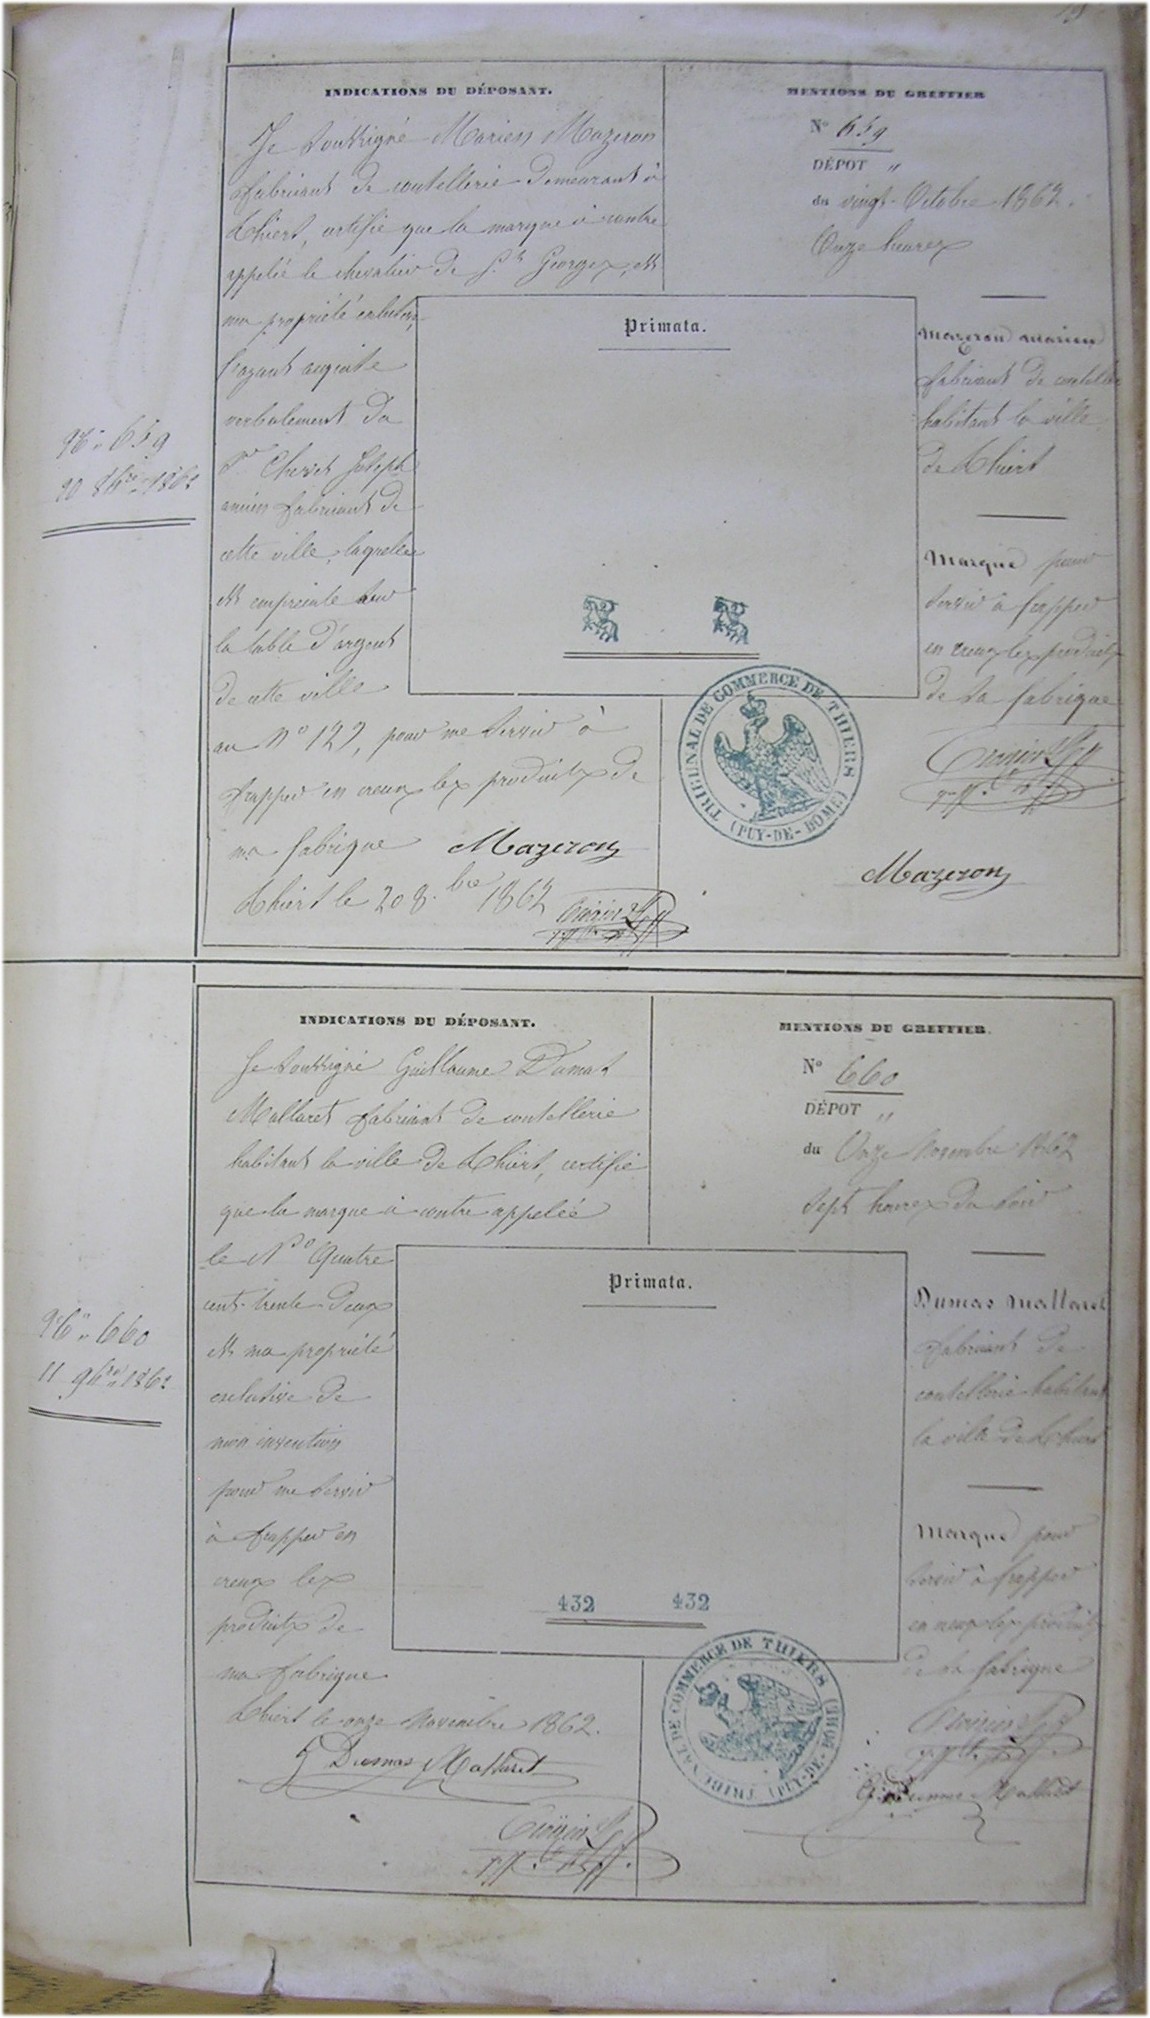 INDICATIONS DU DÉPOSANT.
Je soussigné Marien Mazeron
fabricant de coutellerie demeurant à
Thiers, certifie que la marque ci contre
appelée le chevalier de St Georges, est
ma propriété exclusive,
l'ayant acquise
verbalement du
Sr Joseph
ancien fabricant de
cette ville, laquelle
est empreinte sur
la table d'argent
de cette ville
au No 122, pour me servir à
frapper en creux les produits de
ma fabrique Mazeron
Thiers le 20 8.bre 1862
MENTIONS DU GREFFIER
No 659
DÉPOT "
du vingt Octobre 1862.
Onze heures
Primata.
Mazeron marien
fabricant de coutellerie
habitant la ville
de Thiers
Marque pour
servir à frapper
en creux les produits
de sa fabrique
Mazeron
TRIBUNAL DE COMMERCE DE THIERS
(PUY-DE-DOME)
No 659
20 8bre 1862
INDICATIONS DU DÉPOSANT.
Je soussigné Guillaume Dumas
Mallaret fabricant de coutellerie
habitant la ville de Thiers, certifie
que la marque ci contre appelée
le No Quatre
cent trente deux
est ma propriété
exclusive de
mon invention
pour me servir
à frapper en
creux les
produits de
ma fabrique
Thiers le onze novembre 1862.
G Dumas Mallaret
MENTIONS DU GREFFIER.
No 660
DÉPOT "
du Onze Novembre 1862
sept heures du soir
Primata.
432 432
Dumas Mallaret
fabricant de
coutellerie habitant
la ville de Thiers
Marque pour
servir à frapper
en creux les produits
de sa fabrique
G. Dumas Mallaret
TRIBUNAL DE COMMERCE DE THIERS
(PUY-DE-DOME)
No 660
11 9bre 1862